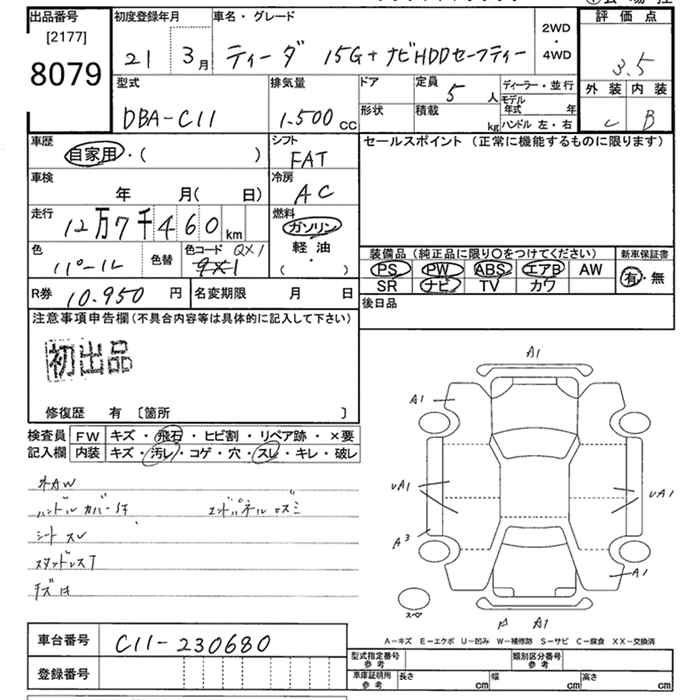 出品番号
[2177]
8079
初度登録年月
21 3月
車名・グレード
ティーダ 15G+ナビHDDセーフティー
2WD
・
4WD
評価点
3.5
外装 内装
C B
型式
DBA-C11
排気量
1.500 CC
ドア
形状
定員 5 人
積載 kg
ディーラー・並行
モデル年式 年
ハンドル 左・右
車歴
自家用・( )
シフト
FAT
セールスポイント (正常に機能するものに限ります)
車検
年 月( 日)
冷房
AC
走行
12万7千460km
燃料
ガソリン
軽油
( )
色
パール
色替
色コード QX1
9X1
装備品 (純正品に限り○をつけてください)
PS PW ABS エアB AW
SR ナビ TV カワ
新車保証書
有・無
R券 10.950 円
名変期限 月 日
後日品
注意事項申告欄 (不具合内容等は具体的に記入して下さい)
初出品
修復歴 有 〔箇所 〕
検査員 FW キズ・飛石・ヒビ割・リペア跡・×要
記入欄 内装 キズ・汚レ・コゲ・穴・スレ・キレ・破レ
外AW
ハンドルカバーS キ
シートスレ
A1
A1
UA1
UA1
A3
A1
スペ
A1
A-キズ E-エクボ U-凹み W-補修跡 S-サビ C-腐食 XX-交換済
車台番号 C11-230680
登録番号
型式指定番号 参考
類別区分番号 参考
車庫証明用 参考
長さ cm
幅 cm
高さ cm